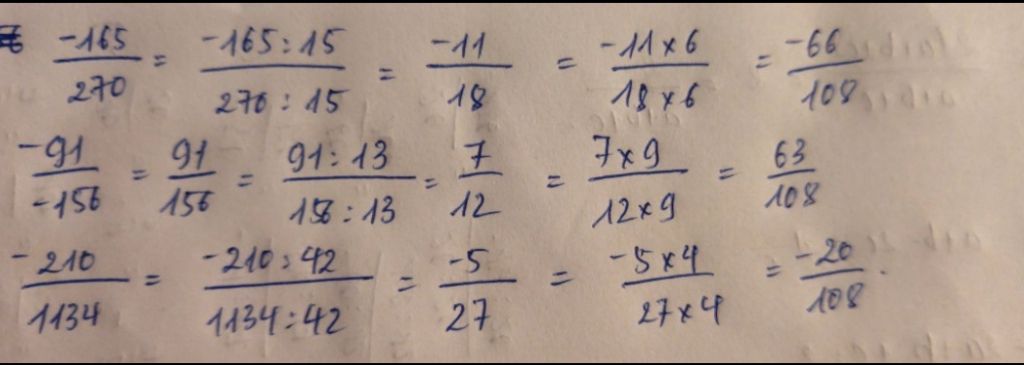 -165/270 = -165:15/270:15 = -11/18 = -11×6/18×6 = -66/108
-91/-156 = 91/156 = 91:13/156:13 = 7/12 = 7×9/12×9 = 63/108
-210/1134 = -210:42/1134:42 = -5/27 = -5×4/27×4 = -20/108.